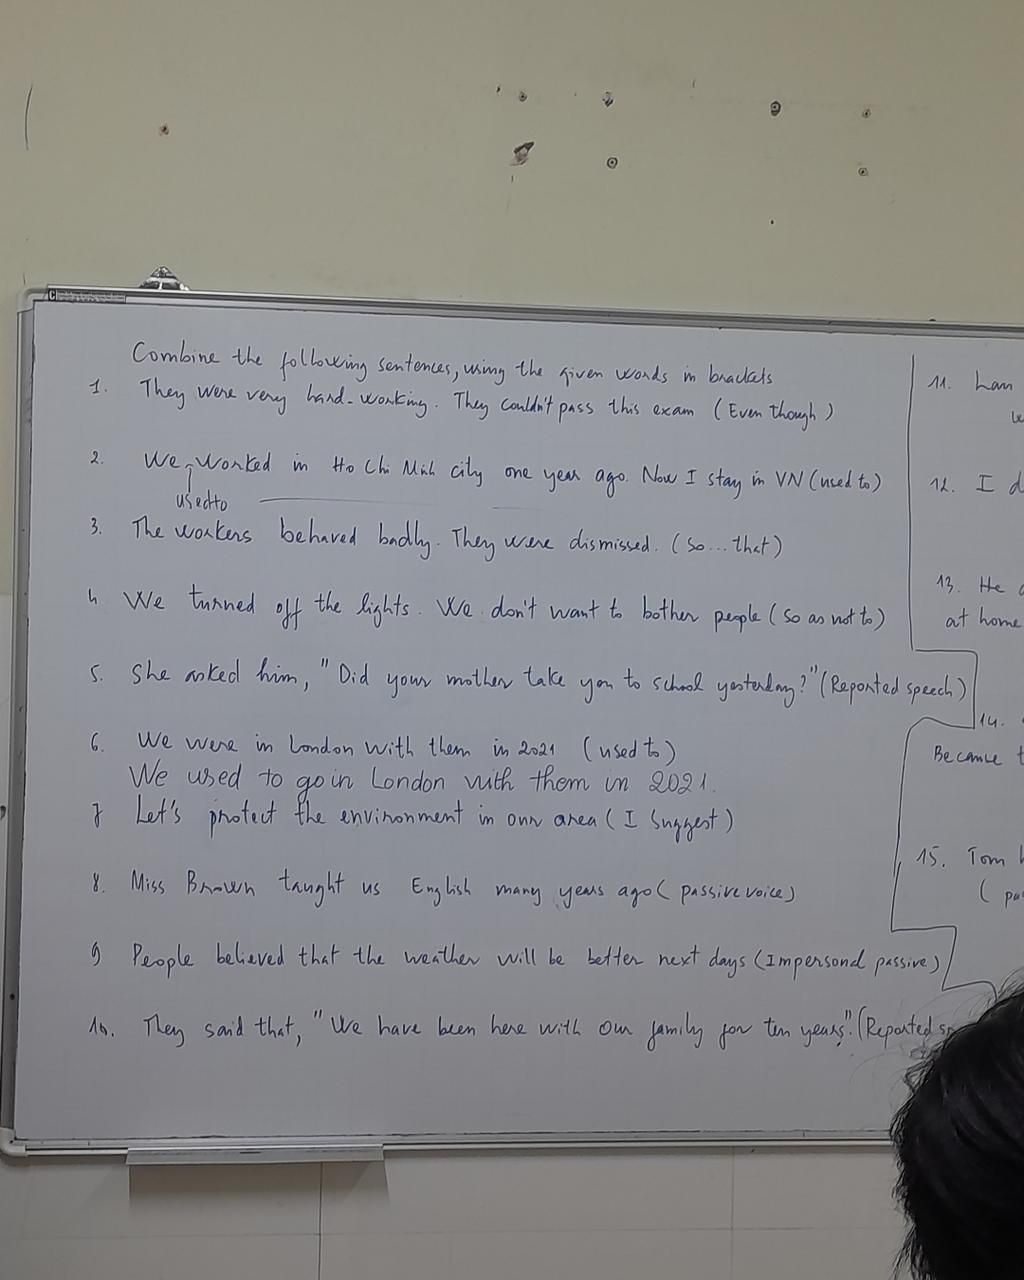 Combine the following sentences, using the given words in brackets
1. They were very hard-working. They couldn't pass this exam (Even though)
2. We worked in Ho Chi Minh city one year ago. Now I stay in VN (used to)
used to
3. The workers behaved badly. They were dismissed. (So... that)
4 We turned off the lights. We don't want to bother people (So as not to)
5. She asked him, "Did your mother take you to school yesterday?" (Reported speech)
6. We were in London with them in 2021 (used to)
We used to go in London with them in 2021.
7 Let's protect the environment in our area (I suggest)
8. Miss Brown taught us English many years ago (passive voice)
9) People believed that the weather will be better next days (Impersonal passive)
10. They said that, "We have been here with our family for ten years". (Reported
11. Lan
12. I
13. He
at home
14.
Because
15. Tom